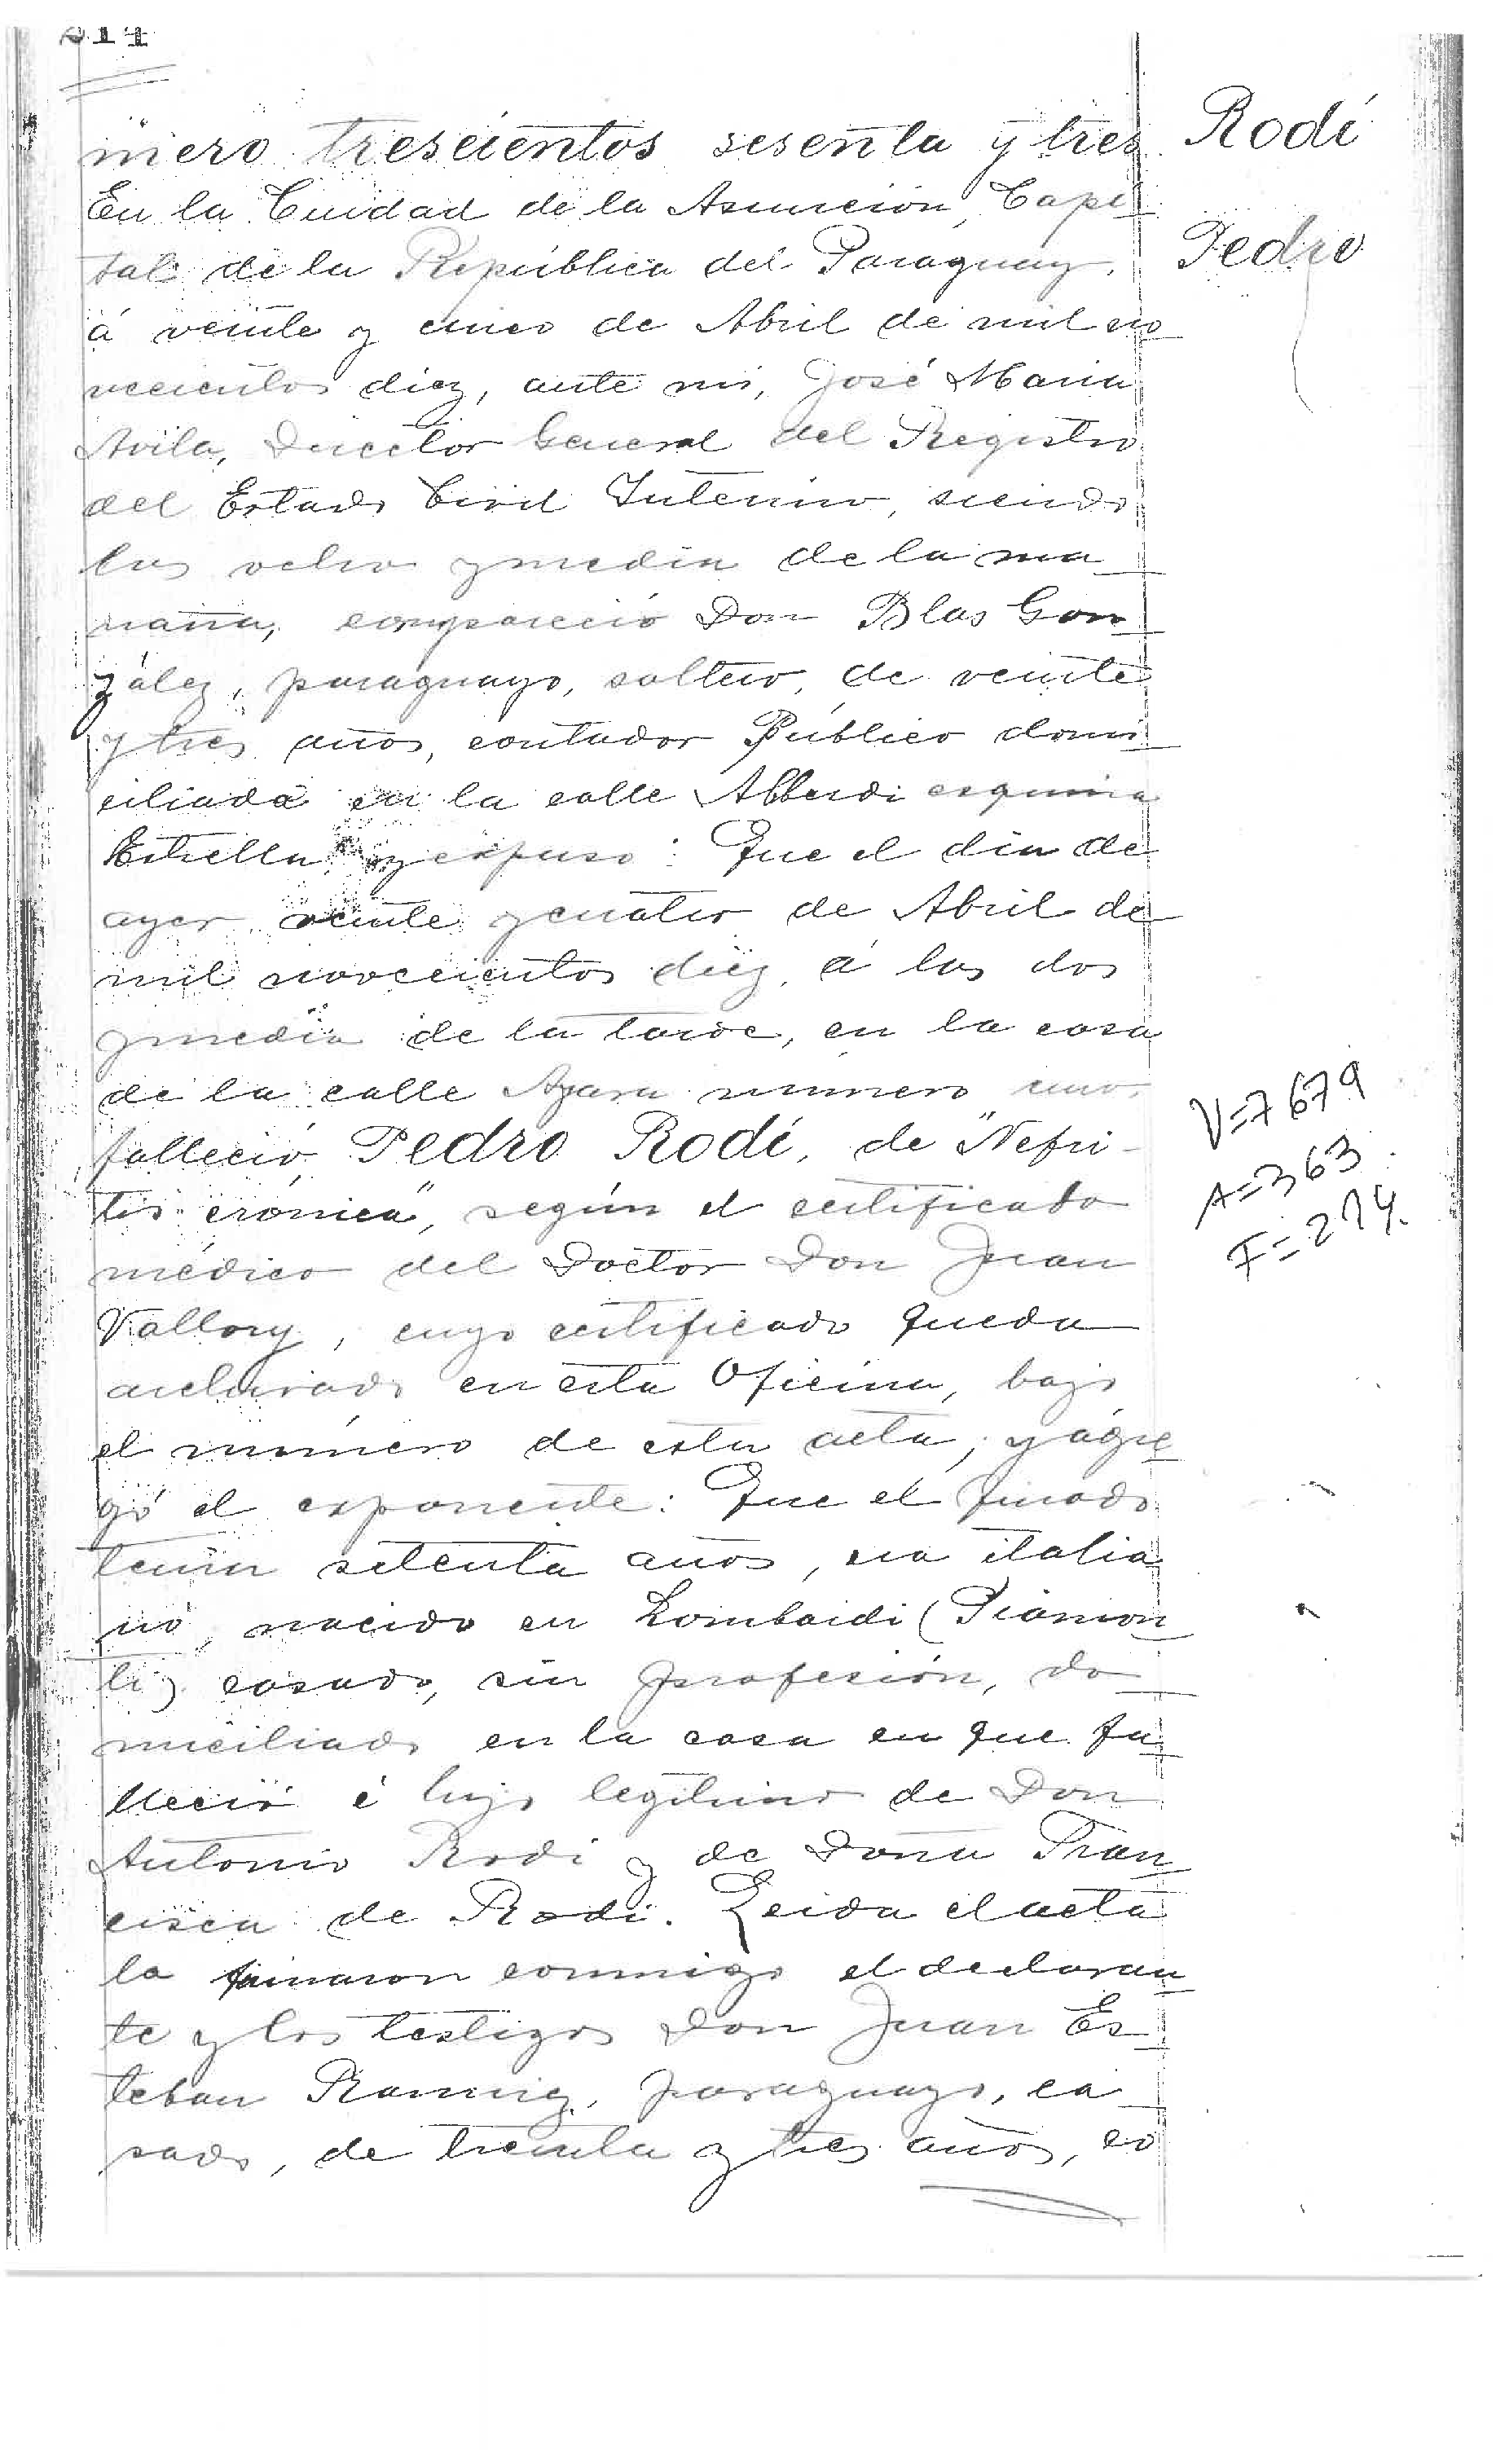 214
Rodí
Pedro
mero trescientos sesenta y tres
En la Ciudad de la Asunción, Capi
tal de la República del Paraguay,
á veinte y cinco de Abril de mil no
vecientos diez, ante mi, José Maria
Avila, Director General del Registro
del Estado Civil Interino, siendo
las ocho y media de la ma
ñana, compareció Don Blas Gon
zález, paraguayo, soltero, de veinte
y tres años, contador Público domi
ciliado en la calle Alberdi esquina
Estrella y expuso: Que el dia de
ayer veinte y cuatro de Abril de
mil novecientos diez, á las dos
y media de la tarde, en la casa
de la calle Azara número uno,
falleció Pedro Rodí, de "Nefri-
tis crónica", según el certificado
médico del Doctor Don Juan
Vallory, cuyo certificado queda
archivado en esta Oficina, bajo
el número de esta acta; y agre
gó el exponente: Que el finado
tenia setenta años, era italia
no, nacido en Lombardi (Piamon
ti) casado, sin profesión, do
miciliado en la casa en que fa
lleció é hijo legitimo de Don
Antonio Rodi y de Doña Fran
cisca de Rodi. Leida el acta
la firmaron conmigo el declaran
te y los testigos Don Juan Es
teban Ramirez, paraguayo, ca
sado, de treinta y tres años, co
V=7679
A=363
F=214.